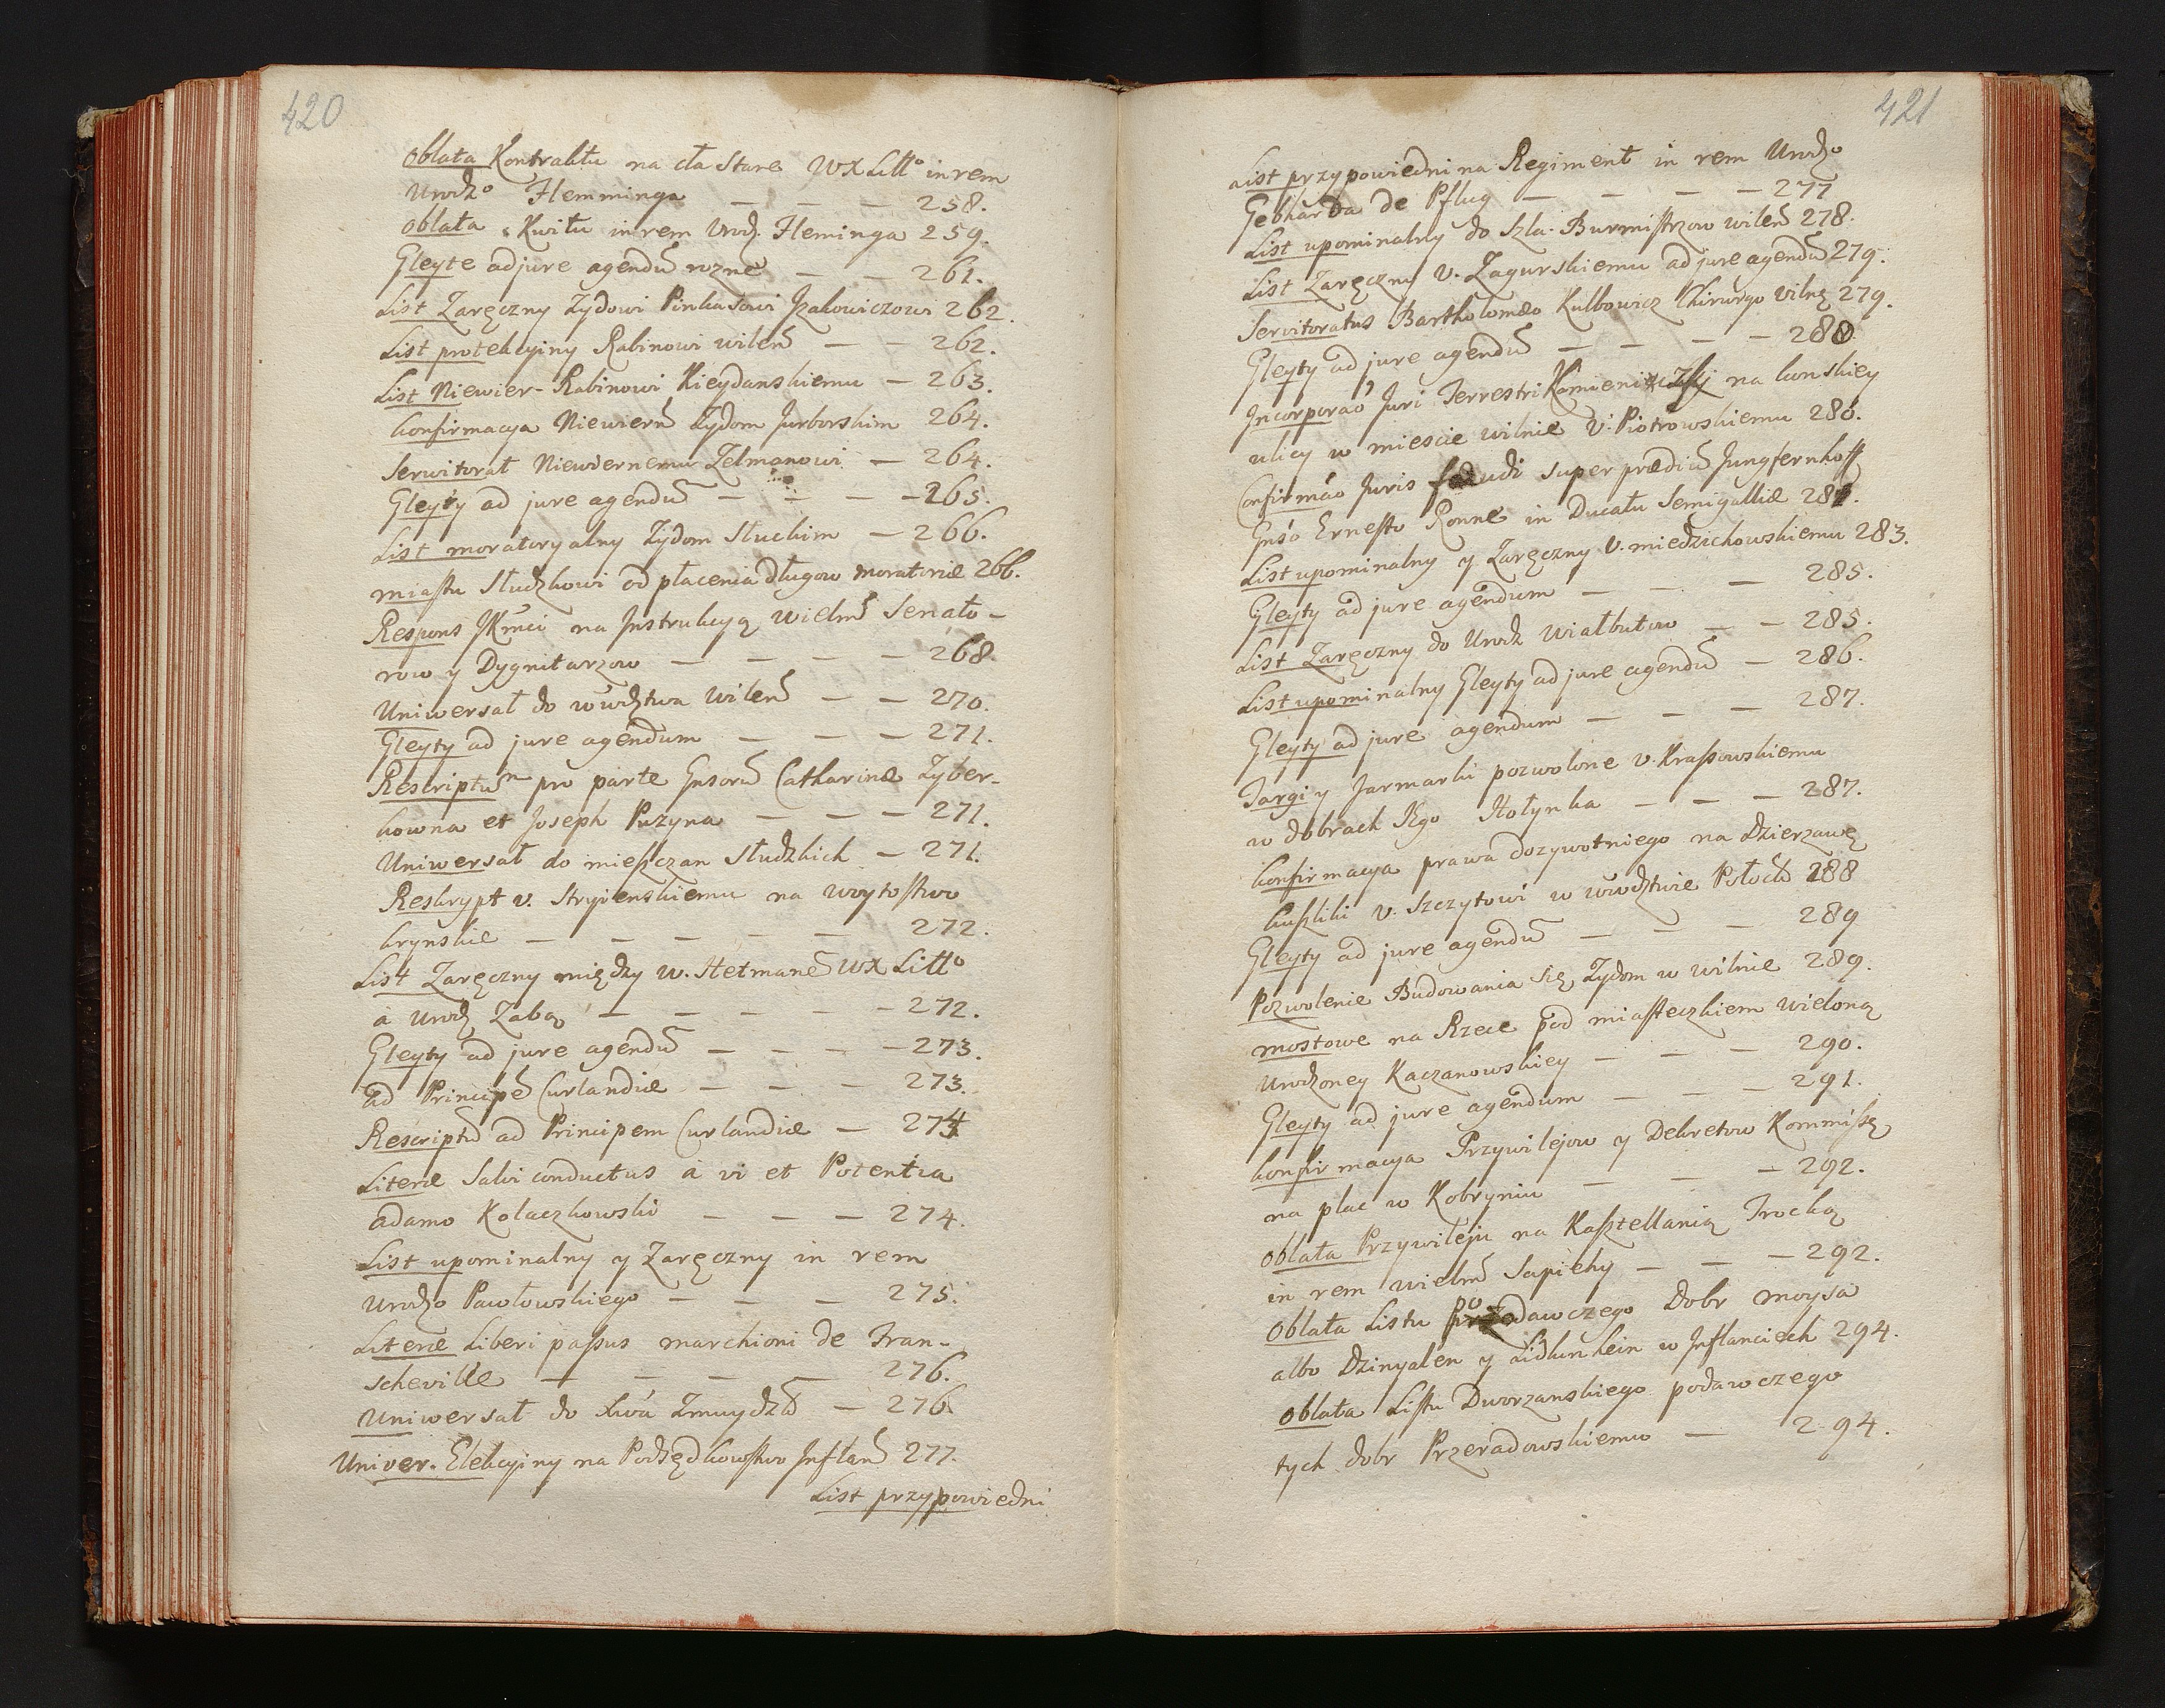 420
Oblata Kontraktu na cła Stare WXLitto in rem
Urodzo Flemminga — — — 258.
Oblata Kwitu in rem Urodz. Fleminga 259.
Gleyte ad jure agendū rozne — — 261.
List Zaręczny Zydowi Pinkasowi Jzakowiczowi 262.
List protekcyiny Rabinowi wilen — — 262.
List Niewier- Rabinowi Kieydanskiemu — 263.
Konfirmacya Niewiern Zydom Jurborskim 264.
Serwitorat Niewiernemu Zelmanowi — 264.
Gleyty ad jure agendū — — — — 265.
List moratoryalny Zydom Słuckim — 266.
miastu Słudzkowi od płacenia długow moratoriæ 266.
Respons JKmci na Jnstrukcyą wielm Senato-
row y Dygnitarzow — — — — 268.
Uniwersał do wwdztwa Wilen — — 270.
Gleyty ad jure agendum — — — 271.
Rescriptum pro parte Gnsorū Catharinæ Zyber-
kowna et Joseph Puzyna — — — 271.
Uniwersał do mieszczan Słudzkich — 271.
Reskrypt v. Strypienskiemu na woytostwo
krynskie — — — — — 272.
List Zaręczny między w. Hetmanē WX Litto
a Urodz Zabą — — — — — 272.
Gleyty ad jure agendū — — — — 273.
ad Principē Curlandiæ — — — 273.
Rescriptū ad Principem Curlandiæ — 274
Literæ Salvi conductus à vi et Potentia
adamo Kolaczkowski — — — 274.
List upominalny y Zaręczny in rem
Urodzo Pawłowskiego — — — 275.
Literæ Liberi passus marchioni de Fran-
scheville — — — — — 276.
Uniwersał do Xwa Zmuydz — 276.
Univer. Elekcyiny na Podsędkowstwo Jnflan 277.
List przypowiedni
421
List przypowiedni na Regiment in rem Urodzo
Gebharda de Pflug — — — — 277
List upominalny do Szla. Burmistrzow wilen 278.
List Zaręczny v. Zagurskiemu ad jure agendū 279.
Servitoratus Bartholomæo Kulbowicz Chirurgo vilnę 279.
Gleyty ad jure agendū — — — — 280.
Jncorporao Juri Terrestri Kamieniczki na konskiey
ulicy w miescie wilnie V. Piotrowskiemu 280.
Confirmao Juris feudi super prædiū Jungfernhoff
Gnso Ernesto Ronne in Ducatu Semigalliæ 281.
List upominalny y Zaręczny V. miedzichowskiemu 283.
Gleyty ad jure agendum — — — 285.
List Zaręczny do Urodz Wiałbutow — — 285.
List upominalny Gleyty ad jure agendū — 286.
Gleyty ad jure agendum — — — 287.
Targi y Jarmarki pozwolone v. Krassowskiemu
w dobrach Jego Hołynka — — — 287.
Konfirmacya prawa dozywotniego na dzierzawę
kuszliki v. Szczytowi w wwdztwie Połock 288
Gleyty ad jure agendū — — — 289
Pozwolenie Budowania się Zydom w wilnie 289.
mostowe na Rzece pod miasteczkiem wieloną
Urodzoney Kaczanowskiey — — — 290.
Gleyty ad jure agendum — — — 291.
Konfirmacya Przywilejow y Dekretow Kommissę
na plac w Kobryniu — — — 292.
Oblata Przywileju na Kasztellanią Trocką
in rem wielm Sapiehy — — — 292.
Oblata Listu podawczego Dobr moysa
albo Dzinyalen y Lidkunhein w Jnflanciech 294.
Oblata Listu Dworzanskiego podawczego
tych dobr Przeradowskiemu — 294.